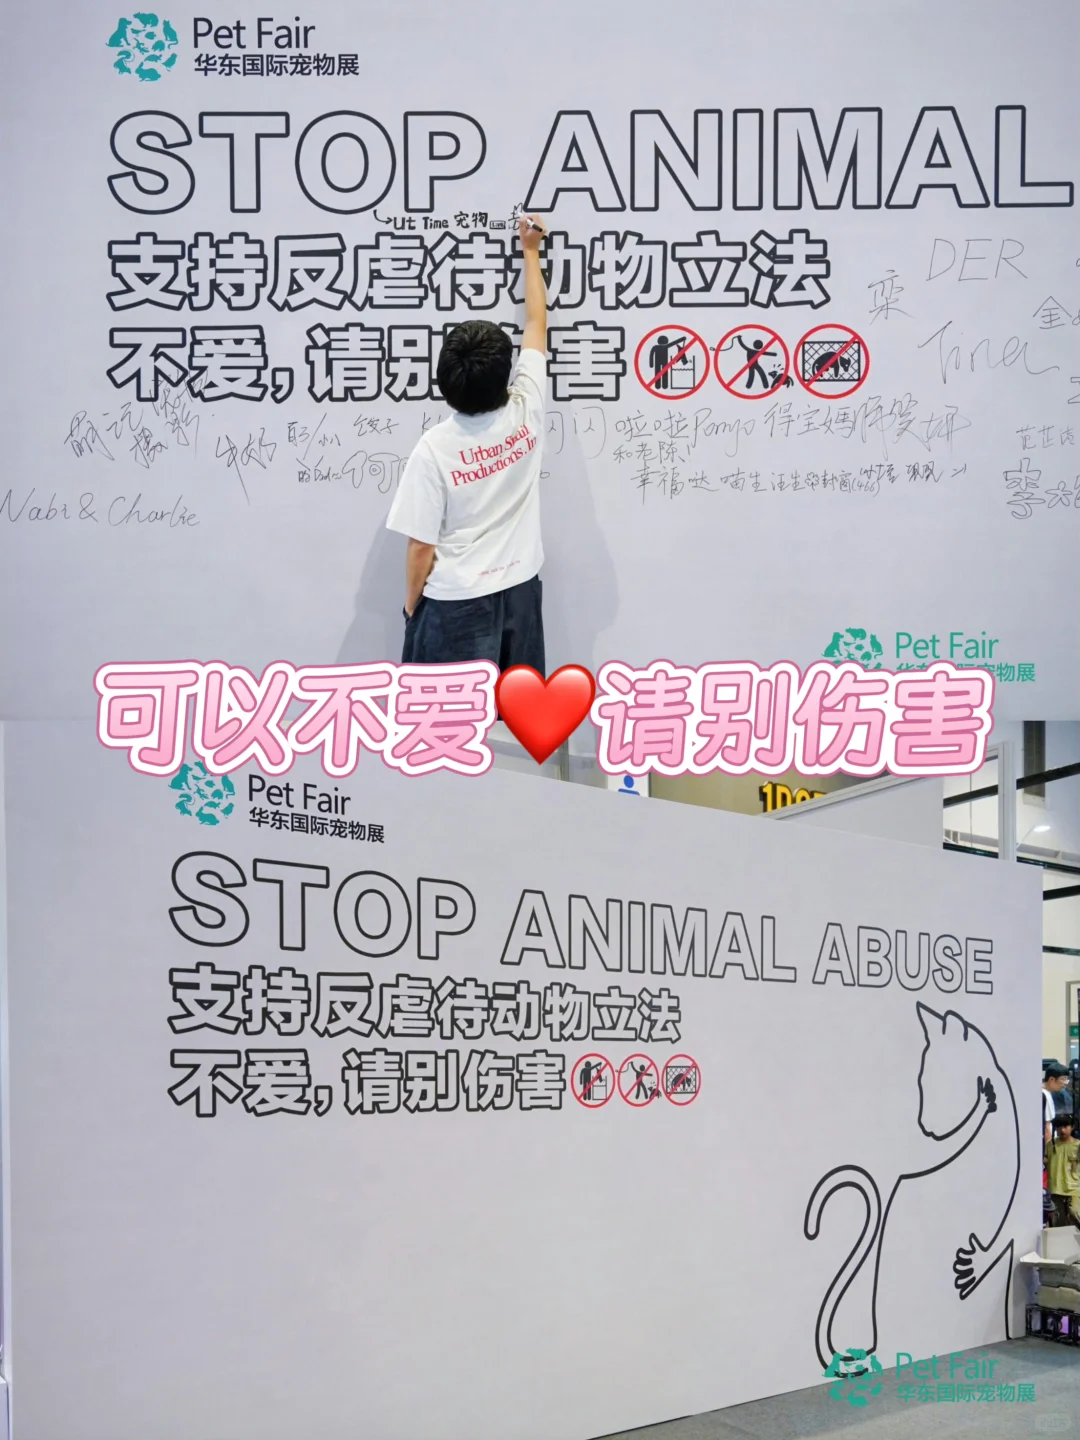 Pet Fair
华东国际宠物展
STOP ANIMAL
Ut Time 宠物
支持反虐待动物立法
DER
栾
金
不爱，请别 害
Tina
牛奶
饺子
闪
啦啦Ponyo
得宝妈
和老陈
幸福哒喵生汪生
Nabi & Charlie
Urban
Productions. In
Pet Fair
华东国际宠物展
可以不爱❤️请别伤害
Pet Fair
华东国际宠物展
STOP ANIMAL ABUSE
支持反虐待动物立法
不爱，请别伤害
Pet Fair
华东国际宠物展